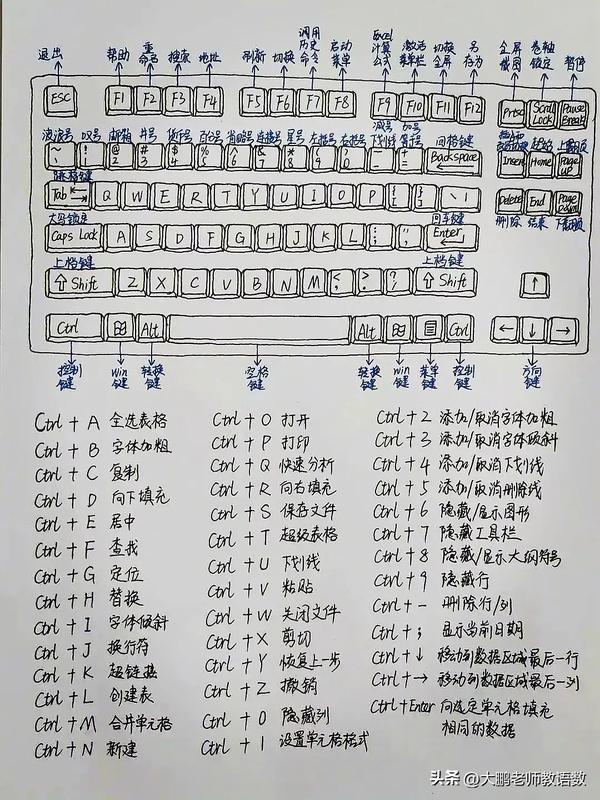 退出 帮助 重命名 搜索 地址 刷新 切换 调用历史命令 启动菜单 Excel计算公式 激活菜单栏 切换全屏 另存为 全屏截图 卷轴锁定 暂停
ESC F1 F2 F3 F4 F5 F6 F7 F8 F9 F10 F11 F12 Prtsc Scroll Lock Pause Break
波浪号 叹号 邮箱 井号 货币号 百分号 省略号 连接号 星号 左括号 右括号 减号下划线 加号等号 回格键
~ ` ! 1 @ 2 # 3 $ 4 % 5 6 7 * 8 ( 9 ) 0 - + = Backspace Insert Home Page up
跳格键
Tab Q W E R T Y U I O P { [ } ] \ | Delete End Page Down
大写锁定 回车键 删除 结束 下翻页
Caps Lock A S D F G H J K L : ; " ' Enter
上档键 上档键
⇧ Shift Z X C V B N M < , > . ? / ⇧ Shift ↑
Ctrl Alt Alt Ctrl ← ↓ →
控制键 win键 转换键 空格键 转换键 win键 菜单键 控制键 方向键
Ctrl + A 全选表格
Ctrl + B 字体加粗
Ctrl + C 复制
Ctrl + D 向下填充
Ctrl + E 居中
Ctrl + F 查找
Ctrl + G 定位
Ctrl + H 替换
Ctrl + I 字体倾斜
Ctrl + J 换行符
Ctrl + K 超链接
Ctrl + L 创建表
Ctrl + M 合并单元格
Ctrl + N 新建
Ctrl + O 打开
Ctrl + P 打印
Ctrl + Q 快速分析
Ctrl + R 向右填充
Ctrl + S 保存文件
Ctrl + T 超级表格
Ctrl + U 下划线
Ctrl + V 粘贴
Ctrl + W 关闭文件
Ctrl + X 剪切
Ctrl + Y 恢复上一步
Ctrl + Z 撤销
Ctrl + 0 隐藏列
Ctrl + 1 设置单元格格式
Ctrl + 2 添加/取消字体加粗
Ctrl + 3 添加/取消字体倾斜
Ctrl + 4 添加/取消下划线
Ctrl + 5 添加/取消删除线
Ctrl + 6 隐藏/显示图形
Ctrl + 7 隐藏工具栏
Ctrl + 8 隐藏/显示大纲符号
Ctrl + 9 隐藏行
Ctrl + - 删除行/列
Ctrl + ; 显示当前日期
Ctrl + ↓ 移动到数据区域最后一行
Ctrl + → 移动到数据区域最后一列
Ctrl + Enter 向选定单元格填充
相同的数据
头条 @大鹏老师教语数